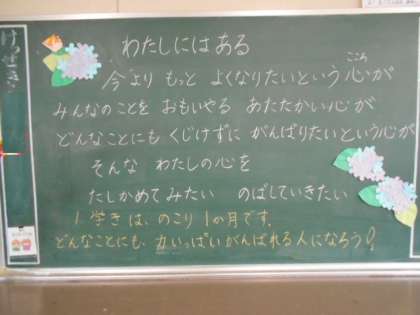 わたしにはある
今より もっと よくなりたいという心が
こころ
みんなのことを おもいやる あたたかい心が
どんなことにも くじけずに がんばりたいという心が
そんな わたしの心を
たしかめてみたい のばしていきたい
1学きは、のこり1か月です。
どんなことにも、力いっぱいがんばれる人になろう!